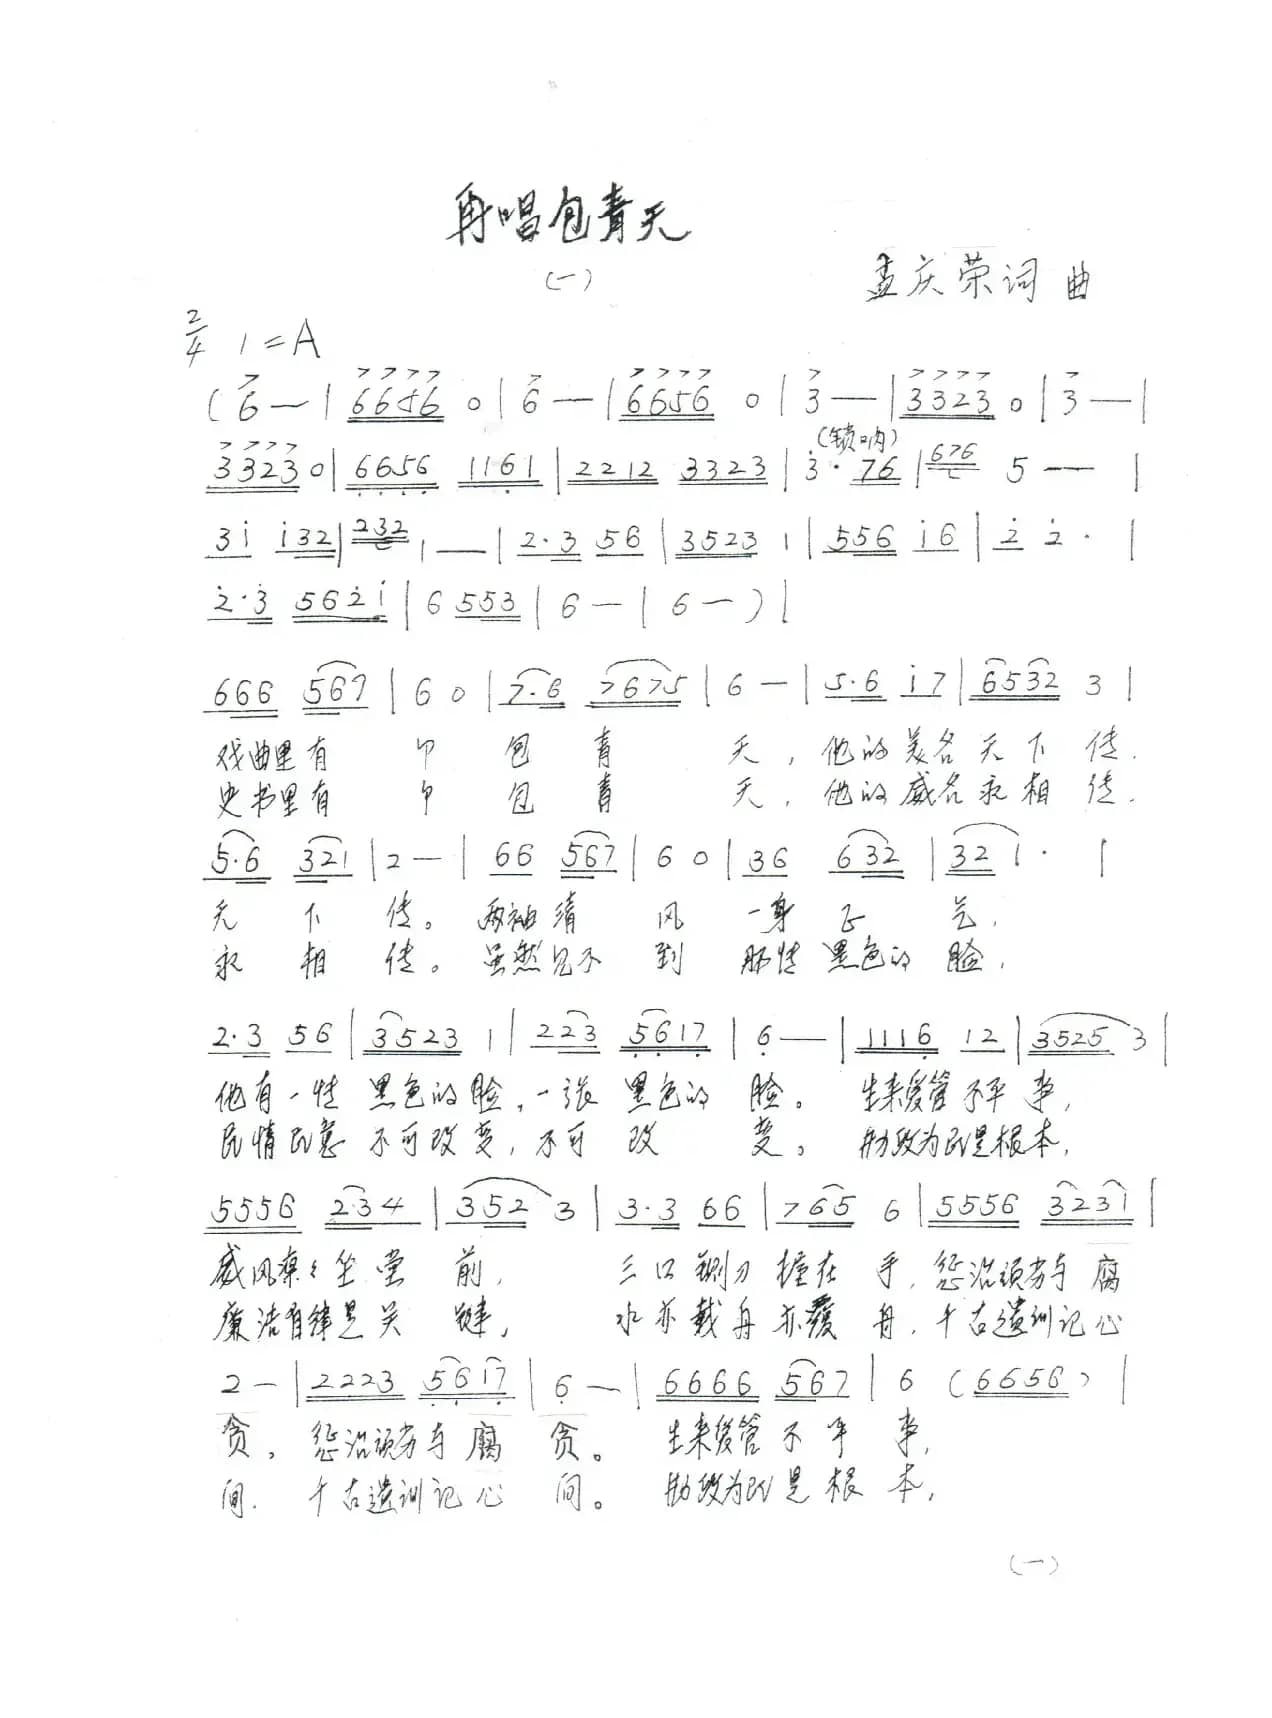 再唱包青天
(一)
孟庆荣词曲
2/4 1=A
(6 — | 6656 0 | 6 — | 6656 0 | 3 — | 3323 0 | 3 — |
(锁呐)
3323 0 | 6656 1161 | 2212 3323 | 3· 76 | 676 5 — |
3i i32 | 232 1 — | 2·3 56 | 3523 1 | 556 i6 | 2 2· |
2·3 562i | 6 553 | 6 — | 6 — ) |
666 567 | 6 0 | 7·6 7675 | 6 — | 5·6 i7 | 6532 3 |
戏曲里有 个 包 青 天, 他的美名天下传.
史书里有 个 包 青 天, 他的威名永相传.
5·6 321 | 2 — | 66 567 | 6 0 | 36 632 | 32 1· |
天 下 传。两袖清 风 一身正 气,
永 相 传。虽然见不到 黑色的脸,
2·3 56 | 3523 1 | 223 5617 | 6 — | 1116 12 | 3525 3 |
他有一 黑色的脸,一张 黑色的 脸。 生来爱管不平 事,
民情民意 不可改变,不可 改 变。 为民是根本,
5556 2·34 | 352 3 | 3·3 66 | 765 6 | 5556 3231 |
威风凛々坐堂 前, 三口铡刀 握在 手, 惩治与 腐
廉洁自律是关 键, 水亦载舟亦覆 舟, 千古遗训记心
2 — | 2223 5617 | 6 — | 6666 567 | 6 (6656) |
贪, 惩治与 腐 贪。 生来爱管 不 平 事,
间. 千古遗训记心 间。 为民是 根 本,
(一)